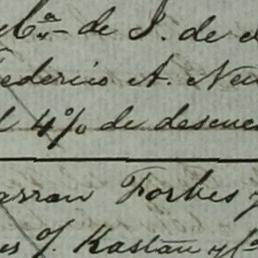 Cª de J. de
Federico A. New
4% de descue
arran Forbes y
J. Kastan y Cª